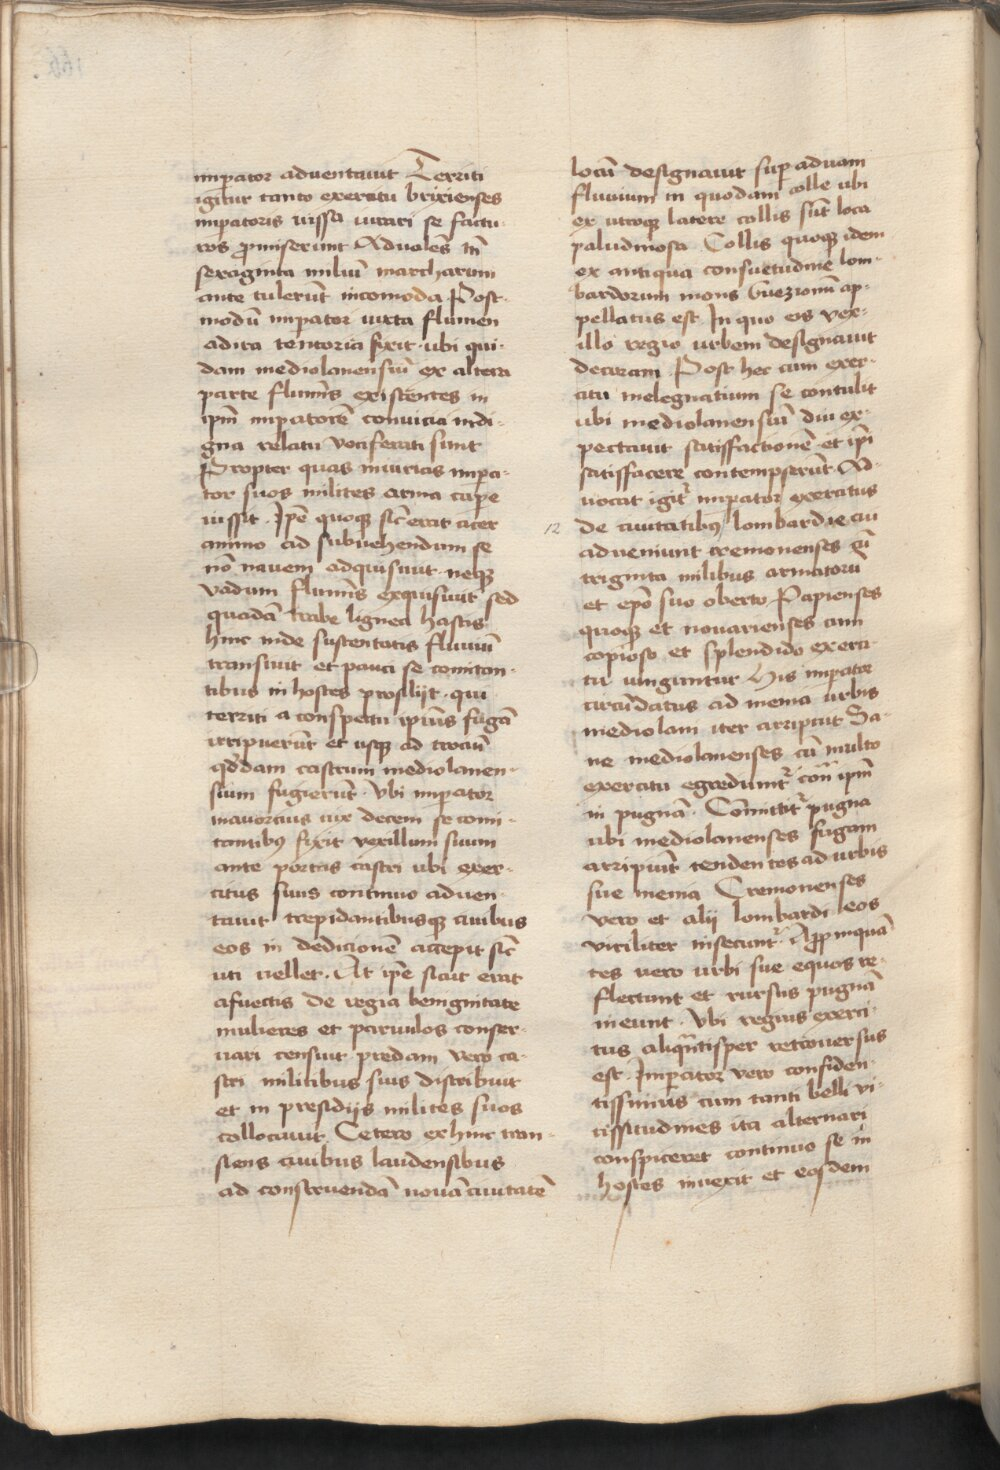 imperator adventavit Territi
igitur tanto exercitu brixienses
imp̄atoris iussa iurari se factu-
ros ꝓmiserunt Aduales tn̄
sexaginta miliū marcharum
ante tulerūt incomoda Post-
modū imp̄ator iuxta flumen
adita tentoria fixit · ubi qui-
dam mediolanensiū ex altera
parte flumīs existentes in
ip̄m imp̄atorē convicia indi-
gna relatu vociferati sunt
Propter quas iniurias imp̄a-
tor suos milites arma cap̄e
iussit · Ip̄e quoqꝫ sic̄ erat acer
animo ad subuehendum se
nō navem adquisiuit · neqꝫ
vadum flumīs exquisiuit sed
quadā trabe lignea hastis
hinc inde sustentatis fluuiū
transiuit et pauci se comitan-
tibus in hostes prosilijt · qui
territi a conspectu ipiūs fugā
irripuerūt et usqꝫ ad trociū
qd̄dam castrum mediolanen-
sium fugierūt · Vbi imp̄ator
mavortius vix decem se comi-
tantibꝰ fixit vexillum suum
ante portas castri ubi exer-
citus suus continuo adven-
tauit trepidantibusqꝫ ciuibus
eos in dedicionē accepit sic̄
uti vellet · At ip̄e sicut erat
afuectis de regia benignitate
mulieres et paruulos conser-
uari censuit predam vero ca-
stri militibus suis distribuit
et in presidijs milites suos
collocauit Cetero exhinc tran-
siens ciuibus laudensibus
ad construendā nouā ciuitatē
locū designauit sup̄ aduam
fluuium in quodam colle ubi
ex utroqꝫ latere collis sūt loca
paludinosa Collis quoqꝫ idem
ex antiqua consuetudine lom-
bardorum mons Guezionū ap-
pellatus est · In quo eis vex-
illo regio urbem designauit
decuram Post hec cum exer-
citu melegnatium se contulit
ubi mediolanensiū diu ex-
pectauit satisfactionē et ip̄i
satisfacere contempserūt Ad-
uocat igit̄ imp̄ator exercitus
12 de ciuitatibꝰ lombardie cui
adveniunt cremonenses cū
triginta milibus armatorū
et ep̄o suo oberto Papienses
quoqꝫ et nouarienses cum
copioso et splendido exerci-
tu iunguntur His imp̄ator
circūdatus ad menia urbis
mediolani iter arripuit Sa-
ne mediolanenses cū multo
exercitu egrediunt̄ con̄ ip̄m
in pugnā · Com̄ittit̄ pugna
ubi mediolanenses fugam
arripiūt tendentes ad urbis
sue menia Cremonenses
vero et alij lombardi eos
viriliter insecunt̄ · Aꝓpinquā
tes vero urbi sue equos re-
flectunt et rursus pugnā
ineunt · Vbi regius exerci-
tus aliqn̄tisper retroversus
est · Imperator vero confiden-
tissimus cum tanti belli vi-
cissitudines ita alternari
conspiceret continuo se in
hostes inuexit et eosdem